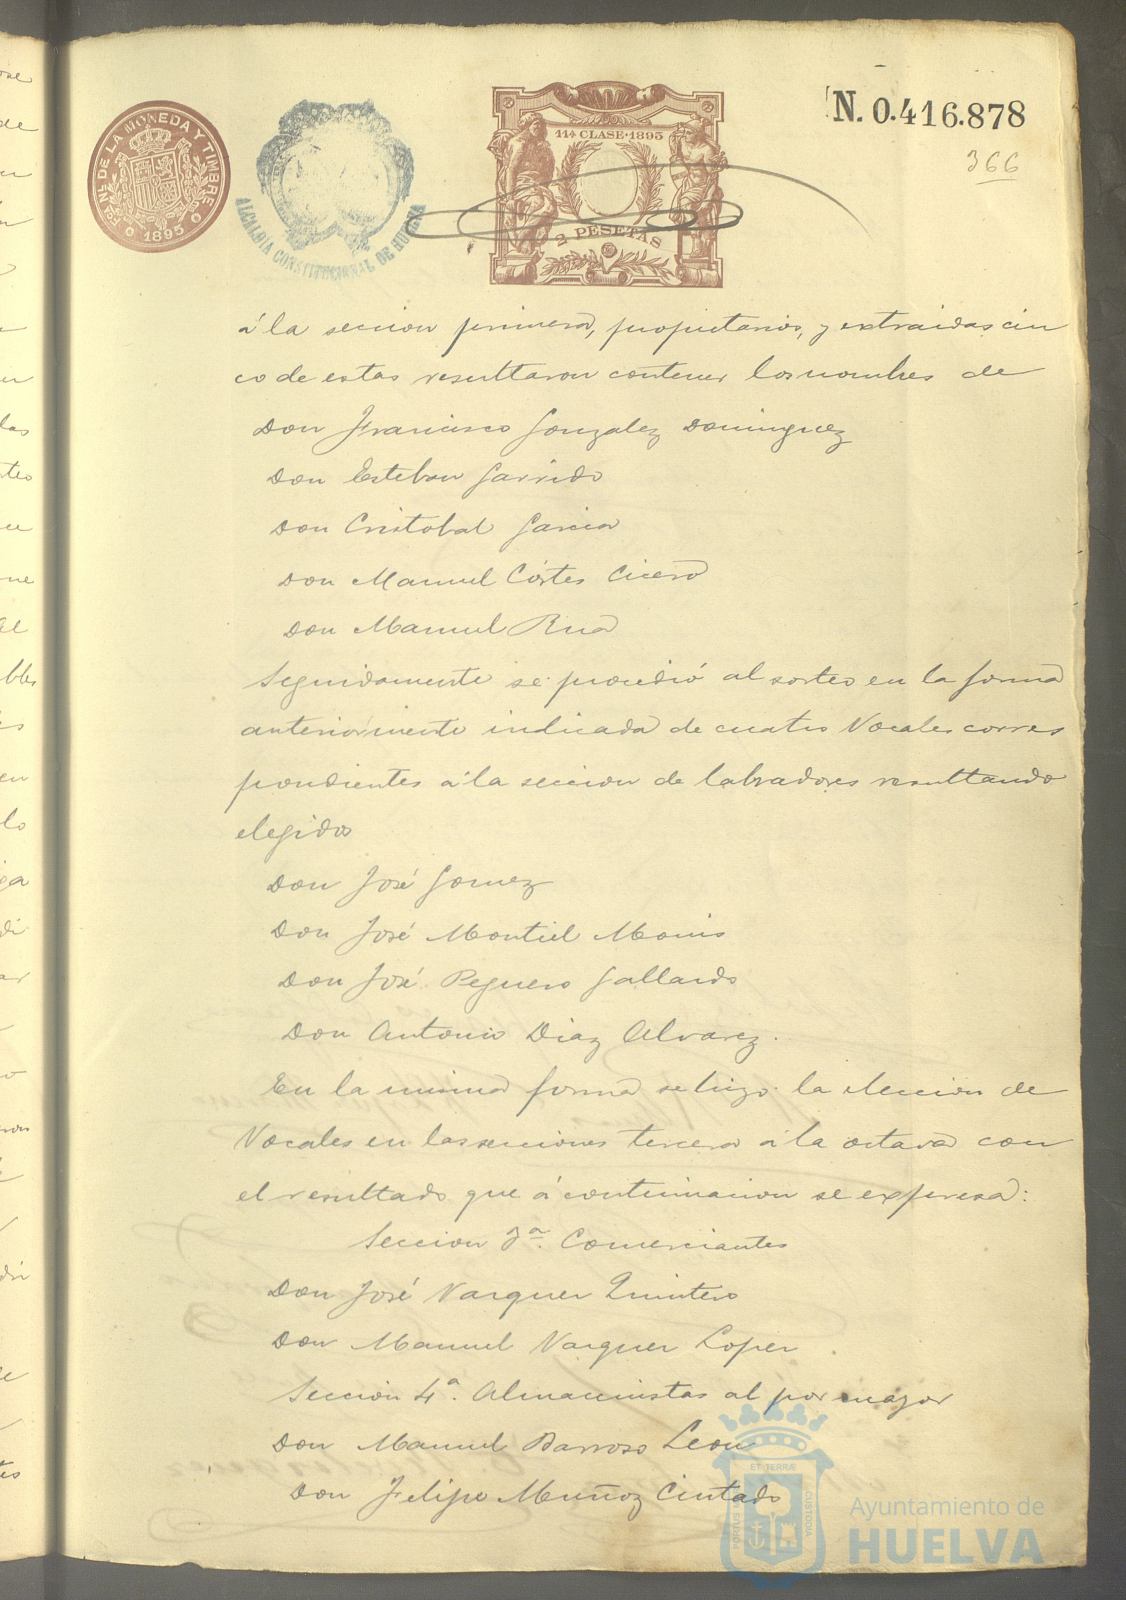 FCA. NL. DE LA MONEDA Y TIMBRE
1895
ALCALDIA CONSTITUCIONAL DE HUELVA
11ª CLASE·1895
2 PESETAS
N. 0.416.878
366
á la seccion primera, propietarios, y extraidas cin
co de estas resultaron contener los nombres de
Don Francisco Gonzalez Dominguez
Don Esteban Garrido
Don Cristobal Garcia
Don Manuel Córtes Cicero
Don Manuel Rua
Seguidamente se procedió al sorteo en la forma
anteriormente indicada de cuatro Vocales corres
pondientes á la seccion de labradores resultando
elegidos
Don José Gomez
Don José Montiel
Don José Peguero Gallardo
Don Antonio Diaz Alvarez.
En la misma forma se hizo la eleccion de
Vocales en las secciones tercera á la octava con
el resultado que á continuacion se expresa:
Seccion 3ª. Comerciantes
Don José Vazquez Quintero
Don Manuel Vazquez Lopez
Seccion 4ª. Almacenistas al por mayor
Don Manuel Barroso Leon
Don Felipe Muñoz Cintado
ET TERRÆ
CUSTODIA
PORTUS MARIS
Ayuntamiento de
HUELVA